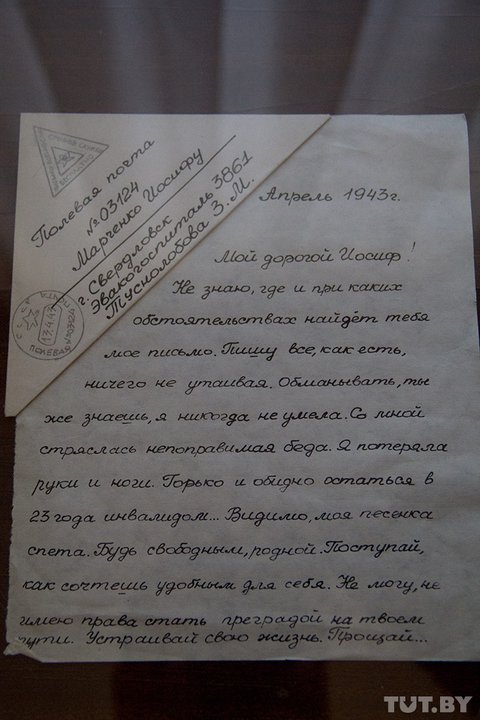 Полевая почта
№ 03124
Марченко Иосифу
г. Свердловск
Эвакогоспиталь 3861
Туснолобова З. М.
СССР
17 4 43
ПОЛЕВАЯ
Апрель 1943г.
Мой дорогой Иосиф!
Не знаю, где и при каких
обстоятельствах найдёт тебя
мое письмо. Пишу все, как есть,
ничего не утаивая. Обманывать, ты
же знаешь, я никогда не умела. Со мной
стряслась непоправимая беда. Я потеряла
руки и ноги. Горько и обидно остаться в
23 года инвалидом... Видимо, моя песенка
спета. Будь свободным, родной. Поступай,
как сочтешь удобным для себя. Не могу, не
имею права стать преградой на твоем
пути. Устраивай свою жизнь. Прощай...
TUT.BY